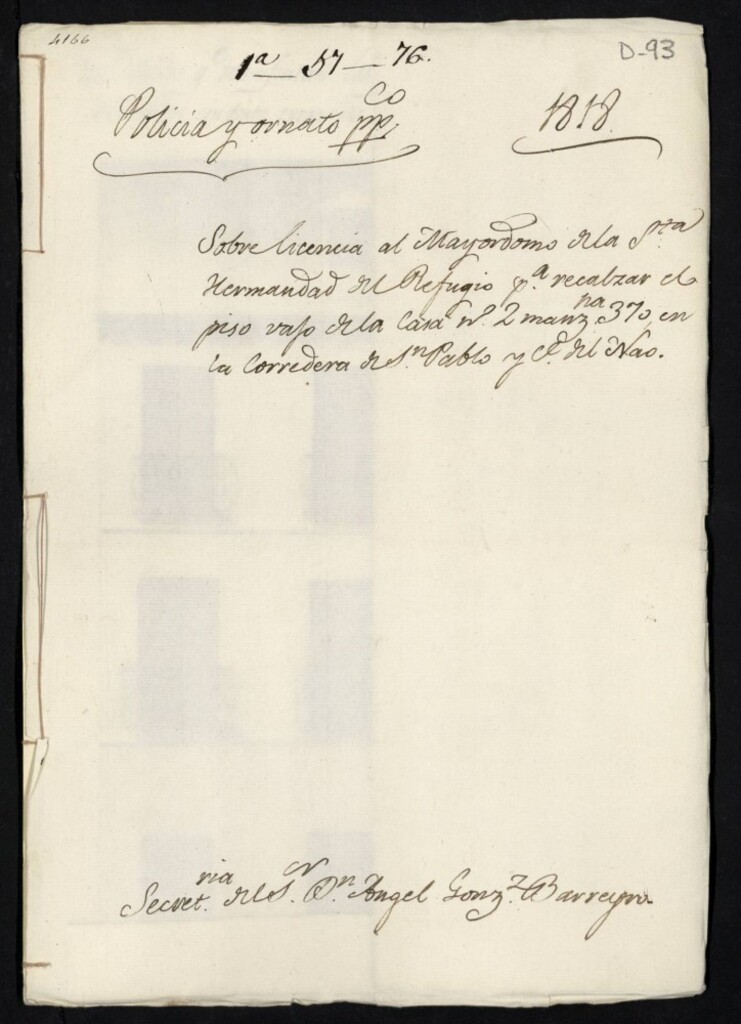 4166
D-93
1ª — 57 — 76.
Policia y ornato ppco
1818.
Sobre licencia al Mayordomo de la Sta
Hermandad del Refugio pª recalzar el
piso vajo de la Casa nº. 2 manzna 370, en
la Corredera de Sn Pablo y Ce. del Nao.
Secretria del Sr. Dn Angel Gonzz Barreyro.